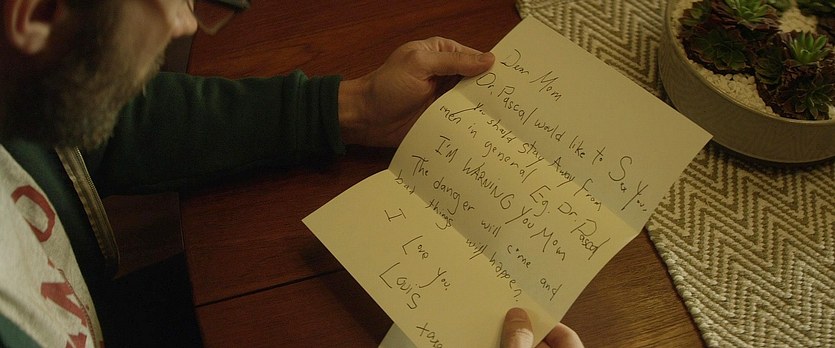 Dear Mom
Dr. Pascal would like to See You.
You should stay Away from
men in general Eg. Dr. Pascal
I'M WARNING YOU MOM
The danger will come and
bad things will happen.
I Love You.
Louis